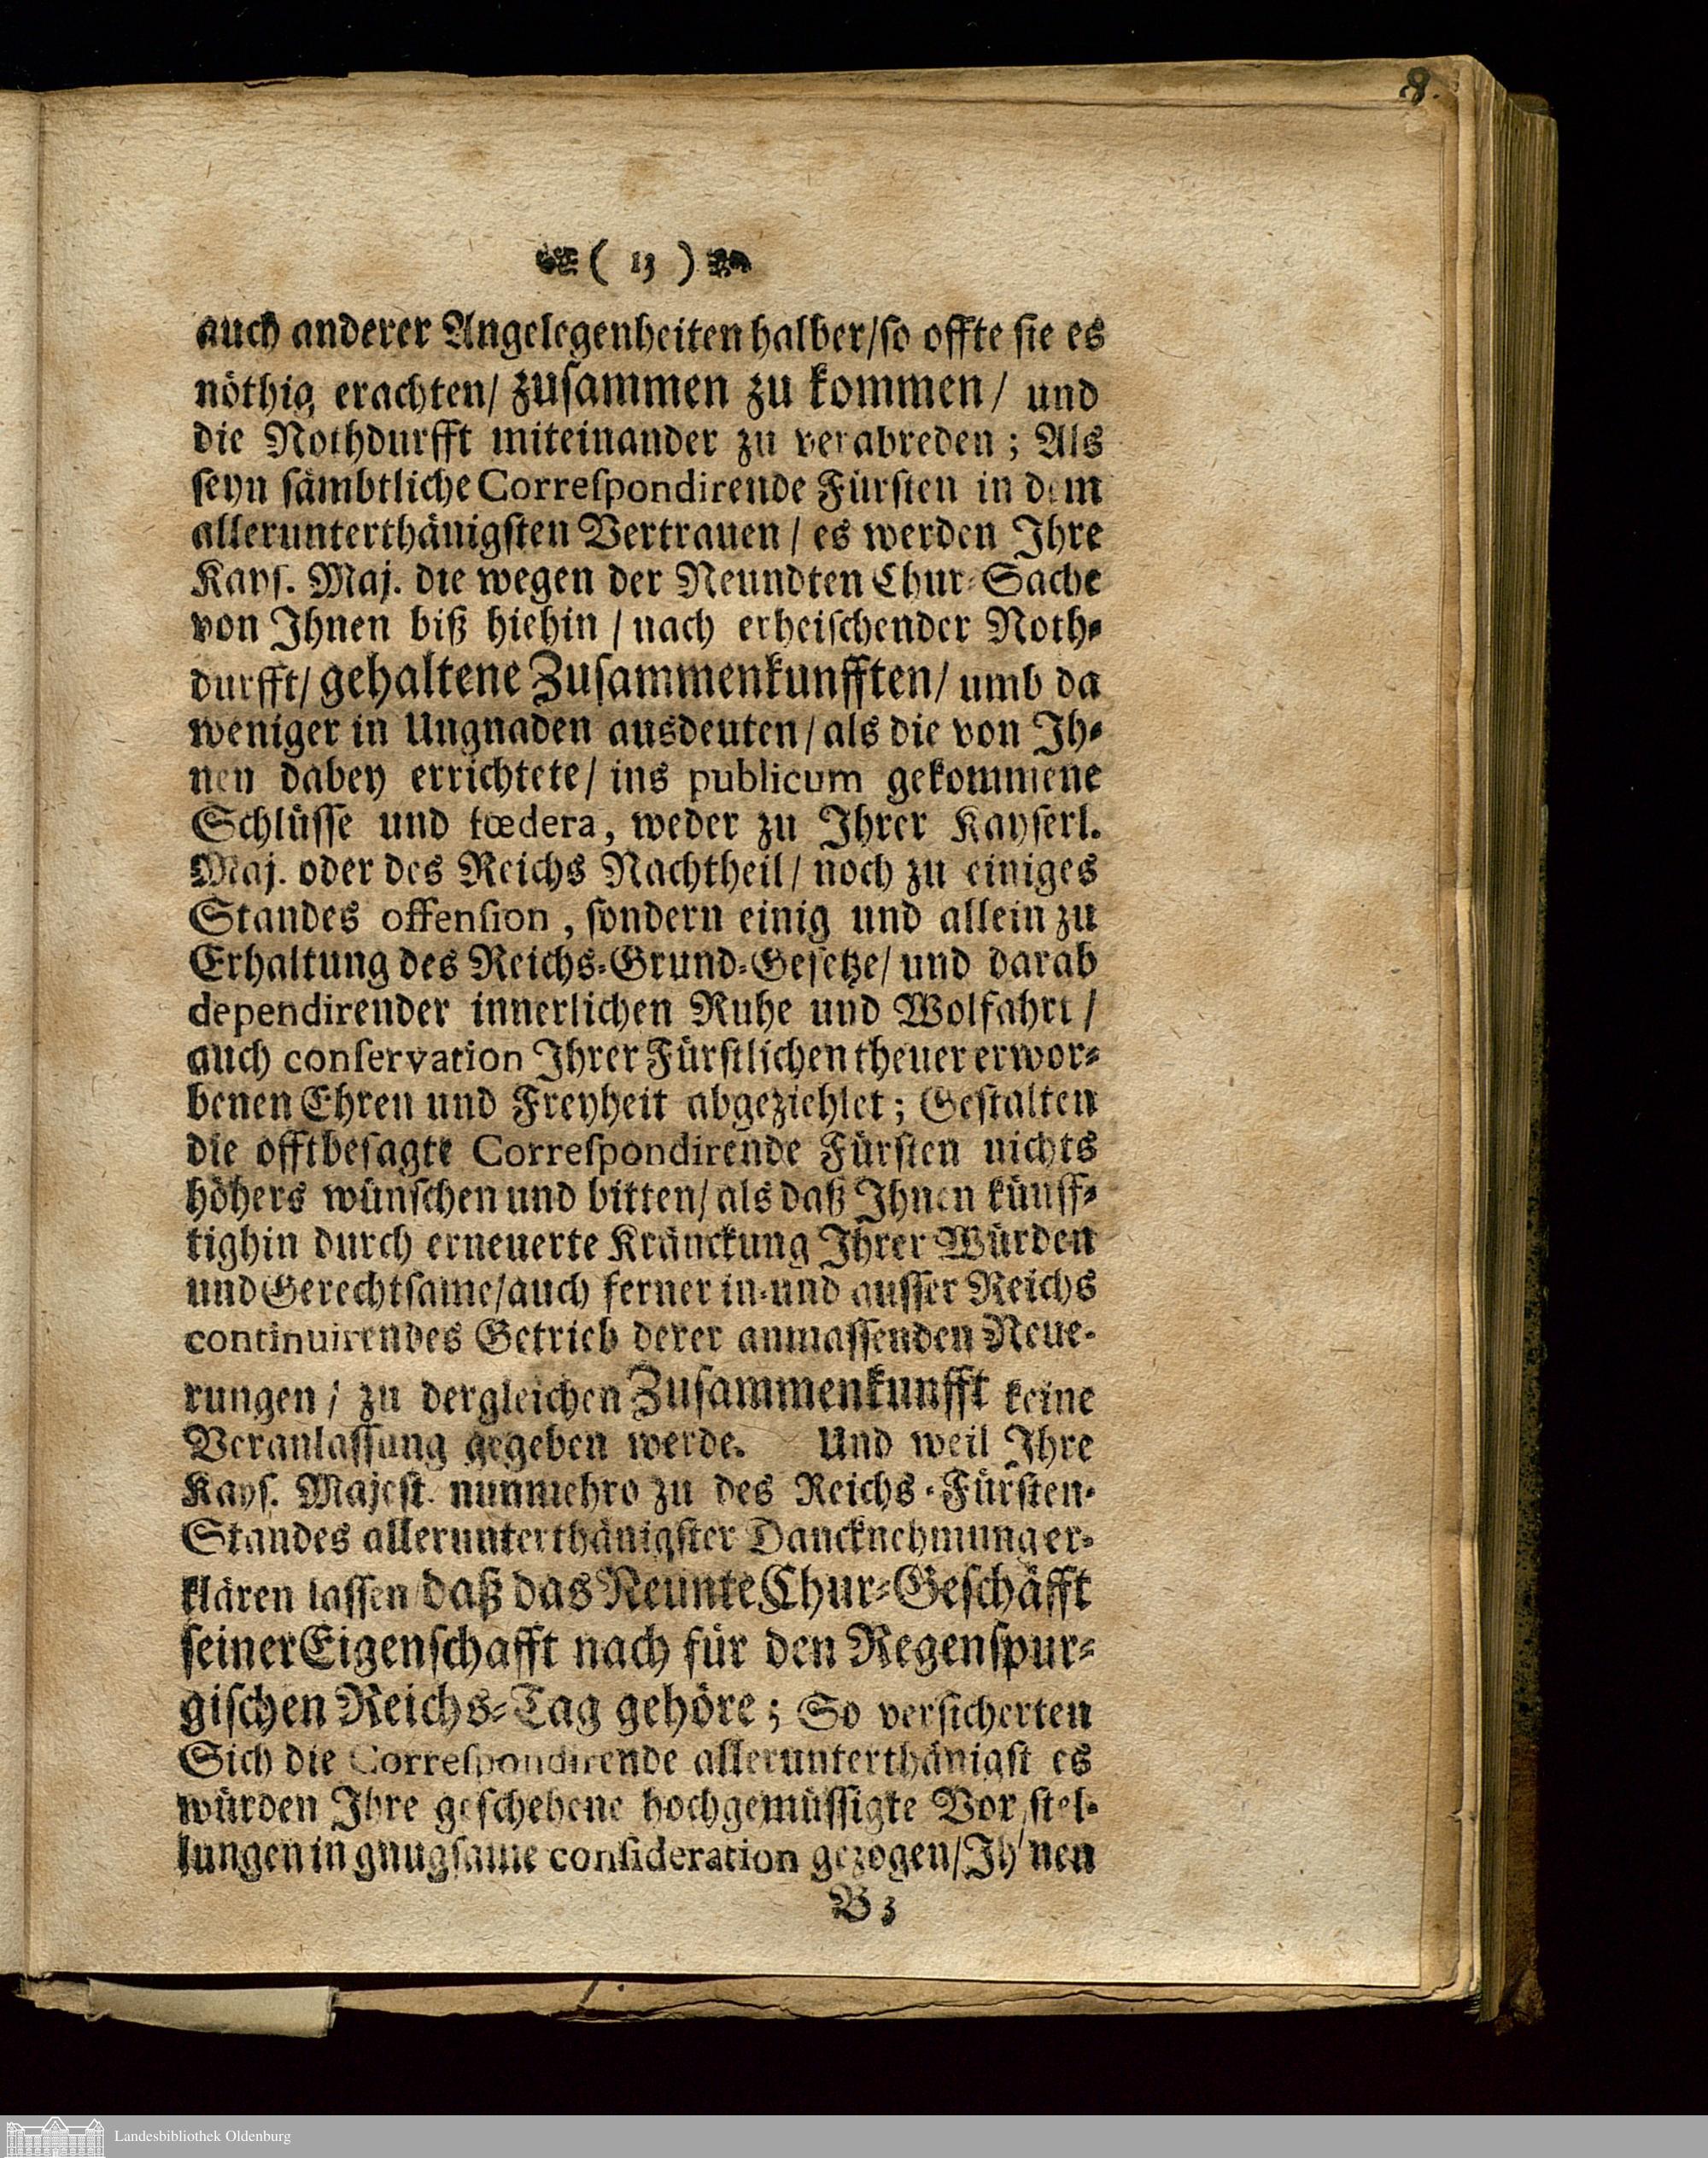 8.
( 13 )
auch anderer Angelegenheiten halber/so offte sie es
nöthig erachten/ zusammen zu kommen/ und
die Nothdurfft miteinander zu verabreden; Als
seyn sämbtliche Correſpondirende Fürsten in dem
allerunterthänigsten Vertrauen/ es werden Ihre
Kays. Maj. die wegen der Neundten Chur-Sache
von Ihnen biß hiehin/ nach erheischender Noth-
durfft/ gehaltene Zusammenkunfften/ umb da
weniger in Ungnaden ausdeuten/ als die von Ih-
nen dabey errichtete/ ins publicum gekommene
Schlüsse und fœdera, weder zu Ihrer Kayserl.
Maj. oder des Reichs Nachtheil/ noch zu einiges
Standes offenſion, sondern einig und allein zu
Erhaltung des Reichs-Grund-Gesetze/ und darab
dependirender innerlichen Ruhe und Wolfahrt/
auch conſervation Ihrer Fürstlichen theuer erwor-
benen Ehren und Freyheit abgeziehlet; Gestalten
die offtbesagte Correſpondirende Fürsten nichts
höhers wünschen und bitten/ als daß Ihnen künff-
tighin durch erneuerte Kränckung Ihrer Würden
und Gerechtsame/auch ferner in-und ausser Reichs
continuirendes Getrieb derer anmassenden Neue-
rungen/ zu dergleichen Zusammenkunfft keine
Veranlassung gegeben werde. Und weil Ihre
Kays. Majest. nunmehro zu des Reichs-Fürsten-
Standes allerunterthänigster Dancknehmung er-
klären lassen/daß das Neunte Chur-Geschäfft
seiner Eigenschafft nach für den Regenspur-
gischen Reichs-Tag gehöre; So versicherten
Sich die Correſpondirende allerunterthänigst es
würden Ihre geschehene hochgemüssigte Vorstel-
lungen in gnugsame conſideration gezogen/Ihnen
B 3
Landesbibliothek Oldenburg